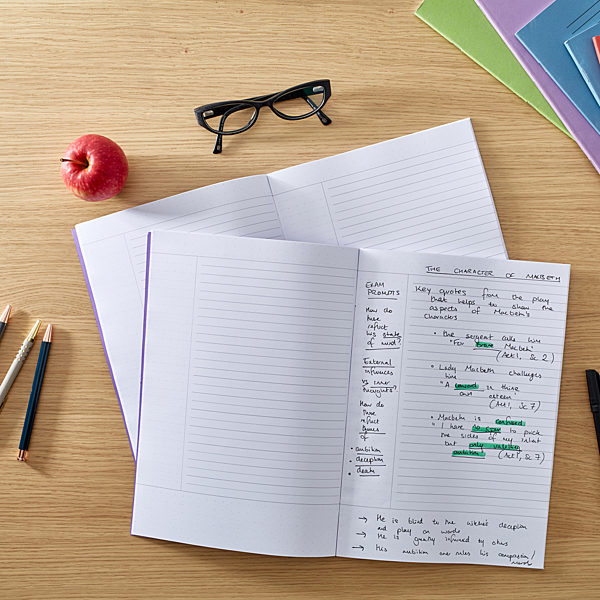 THE CHARACTER OF MACBETH
EXAM
PROMPTS
How do
these
reflect
his state
of mind?
External
influences
vs inner
thoughts?
How do
these
reflect
themes
of
• ambition
• deception
• death
Key quotes from the play
that helps to show the
aspects of Macbeth's
character
• The sergent calls him
"For brave Macbeth"
(Act 1, Sc 2)
• Lady Macbeth challenges
him
"A coward in thine
own esteem"
(Act 1, Sc 7)
• Macbeth is confused
"I have no spur to prick
the sides of my intent
but only vaulting
ambition" (Act 1, Sc 7)
→ He is blind to the witche's deception
and play on words
→ He is greatly influenced by others
→ His ambition over rules his compassion/
morals